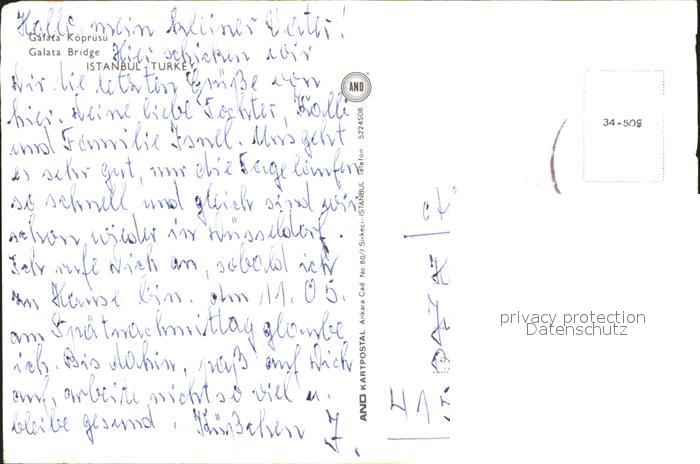 Hallo, mein kleiner Vater!
Galata Köprüsü
Galata Bridge
Hier schicken wir
ISTANBUL - TURKEY
dir die letzten Grüße von
hier. Deine liebe Tochter, Kalli
und Familie Isnel. Uns geht
es sehr gut, nur die Tage laufen
so schnell und gleich sind wir
schon wieder in Düsseldorf.
Ich rufe dich an, sobald ich
zu Hause bin. Am 11.05.
am Spätnachmittag glaube
ich. Bis dahin, paß auf dich
auf, arbeite nicht so viel u.
bleibe gesund. Küßchen J.
AND
AND KARTPOSTAL Ankara Cad. No 60/7 Sirkeci-İSTANBUL Telefon 5224508
34-509
privacy protection
Datenschutz